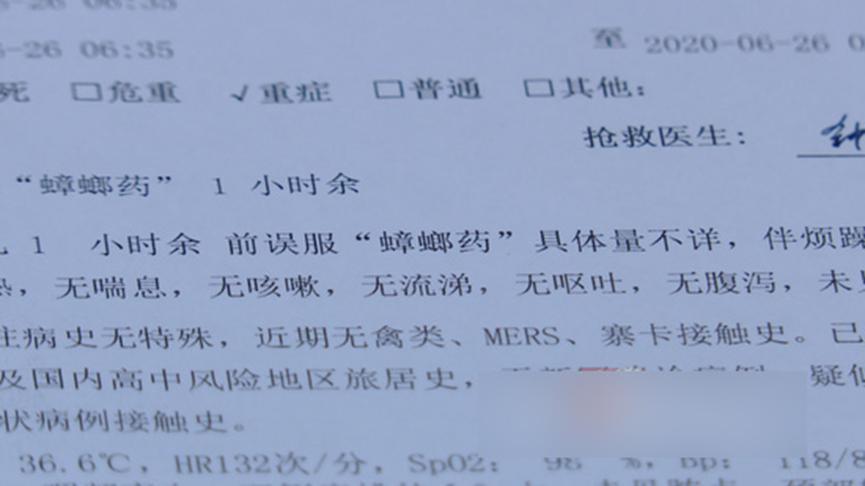 -26 06:35
-26 06:35 至 2020-06-26 0
死 □危重 √重症 □普通 □其他:
抢救医生:
“蟑螂药” 1 小时余
1 小时余 前误服“蟑螂药”具体量不详，伴烦躁
热，无喘息，无咳嗽，无流涕，无呕吐，无腹泻，未见
往病史无特殊，近期无禽类、MERS、寨卡接触史。已
及国内高中风险地区旅居史， 疑似
状病例接触史。
36.6℃，HR132次/分，SpO2: 98 %，Bp: 118/8